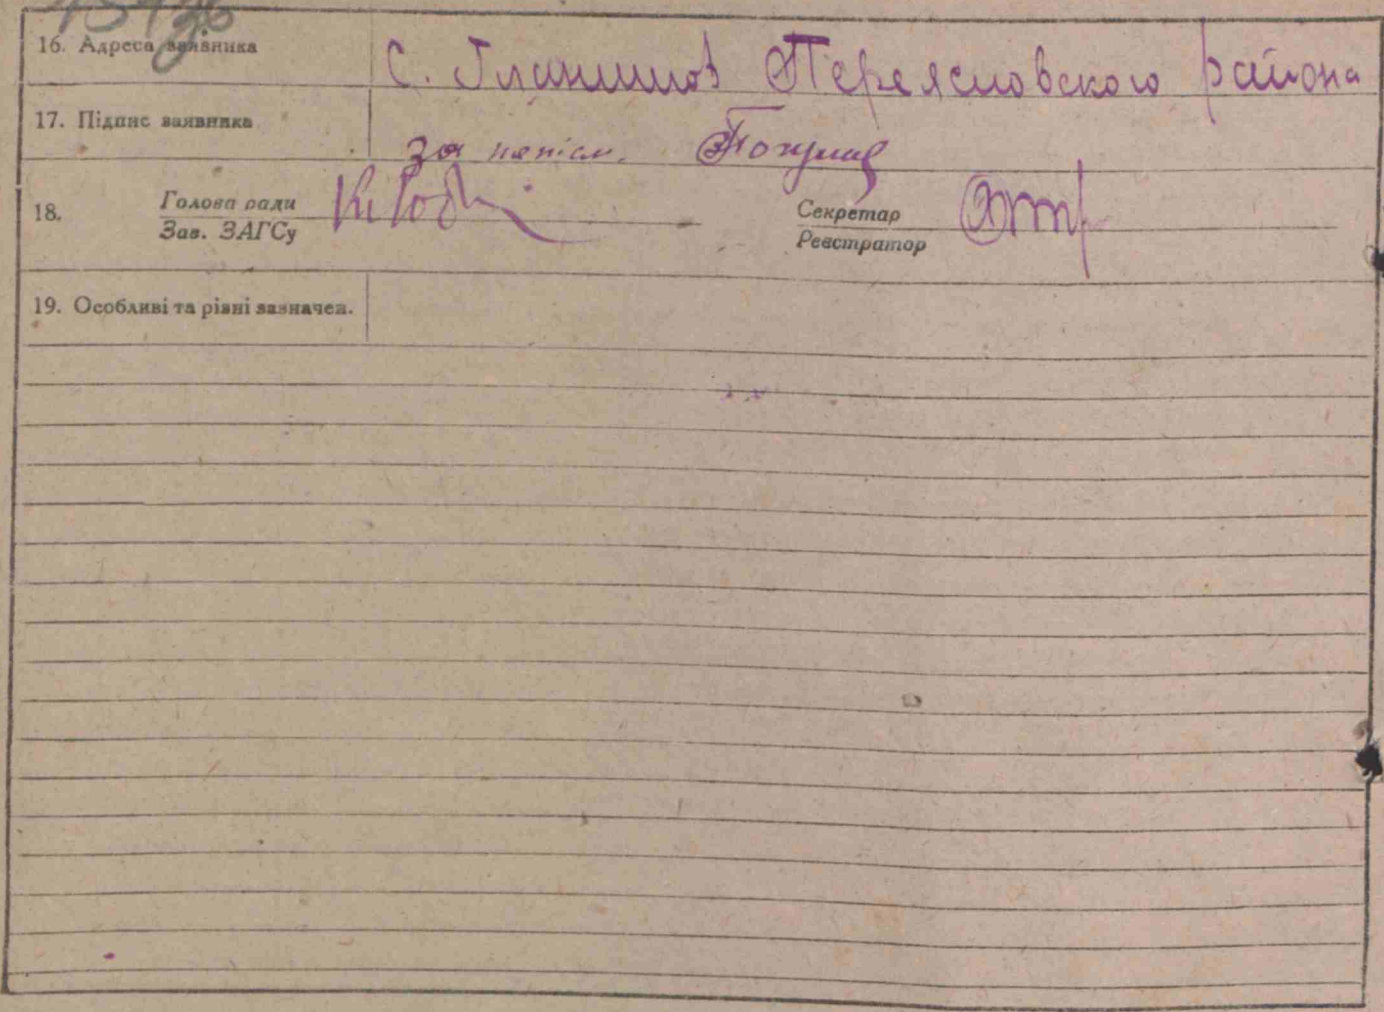 16. Адреса заявника с. Гланишов Переясловского района
17. Підпис заявника за неписм.
18. Голова ради Секретар
Зав. ЗАГСу Реєстратор
19. Особливі та різні зазначен.